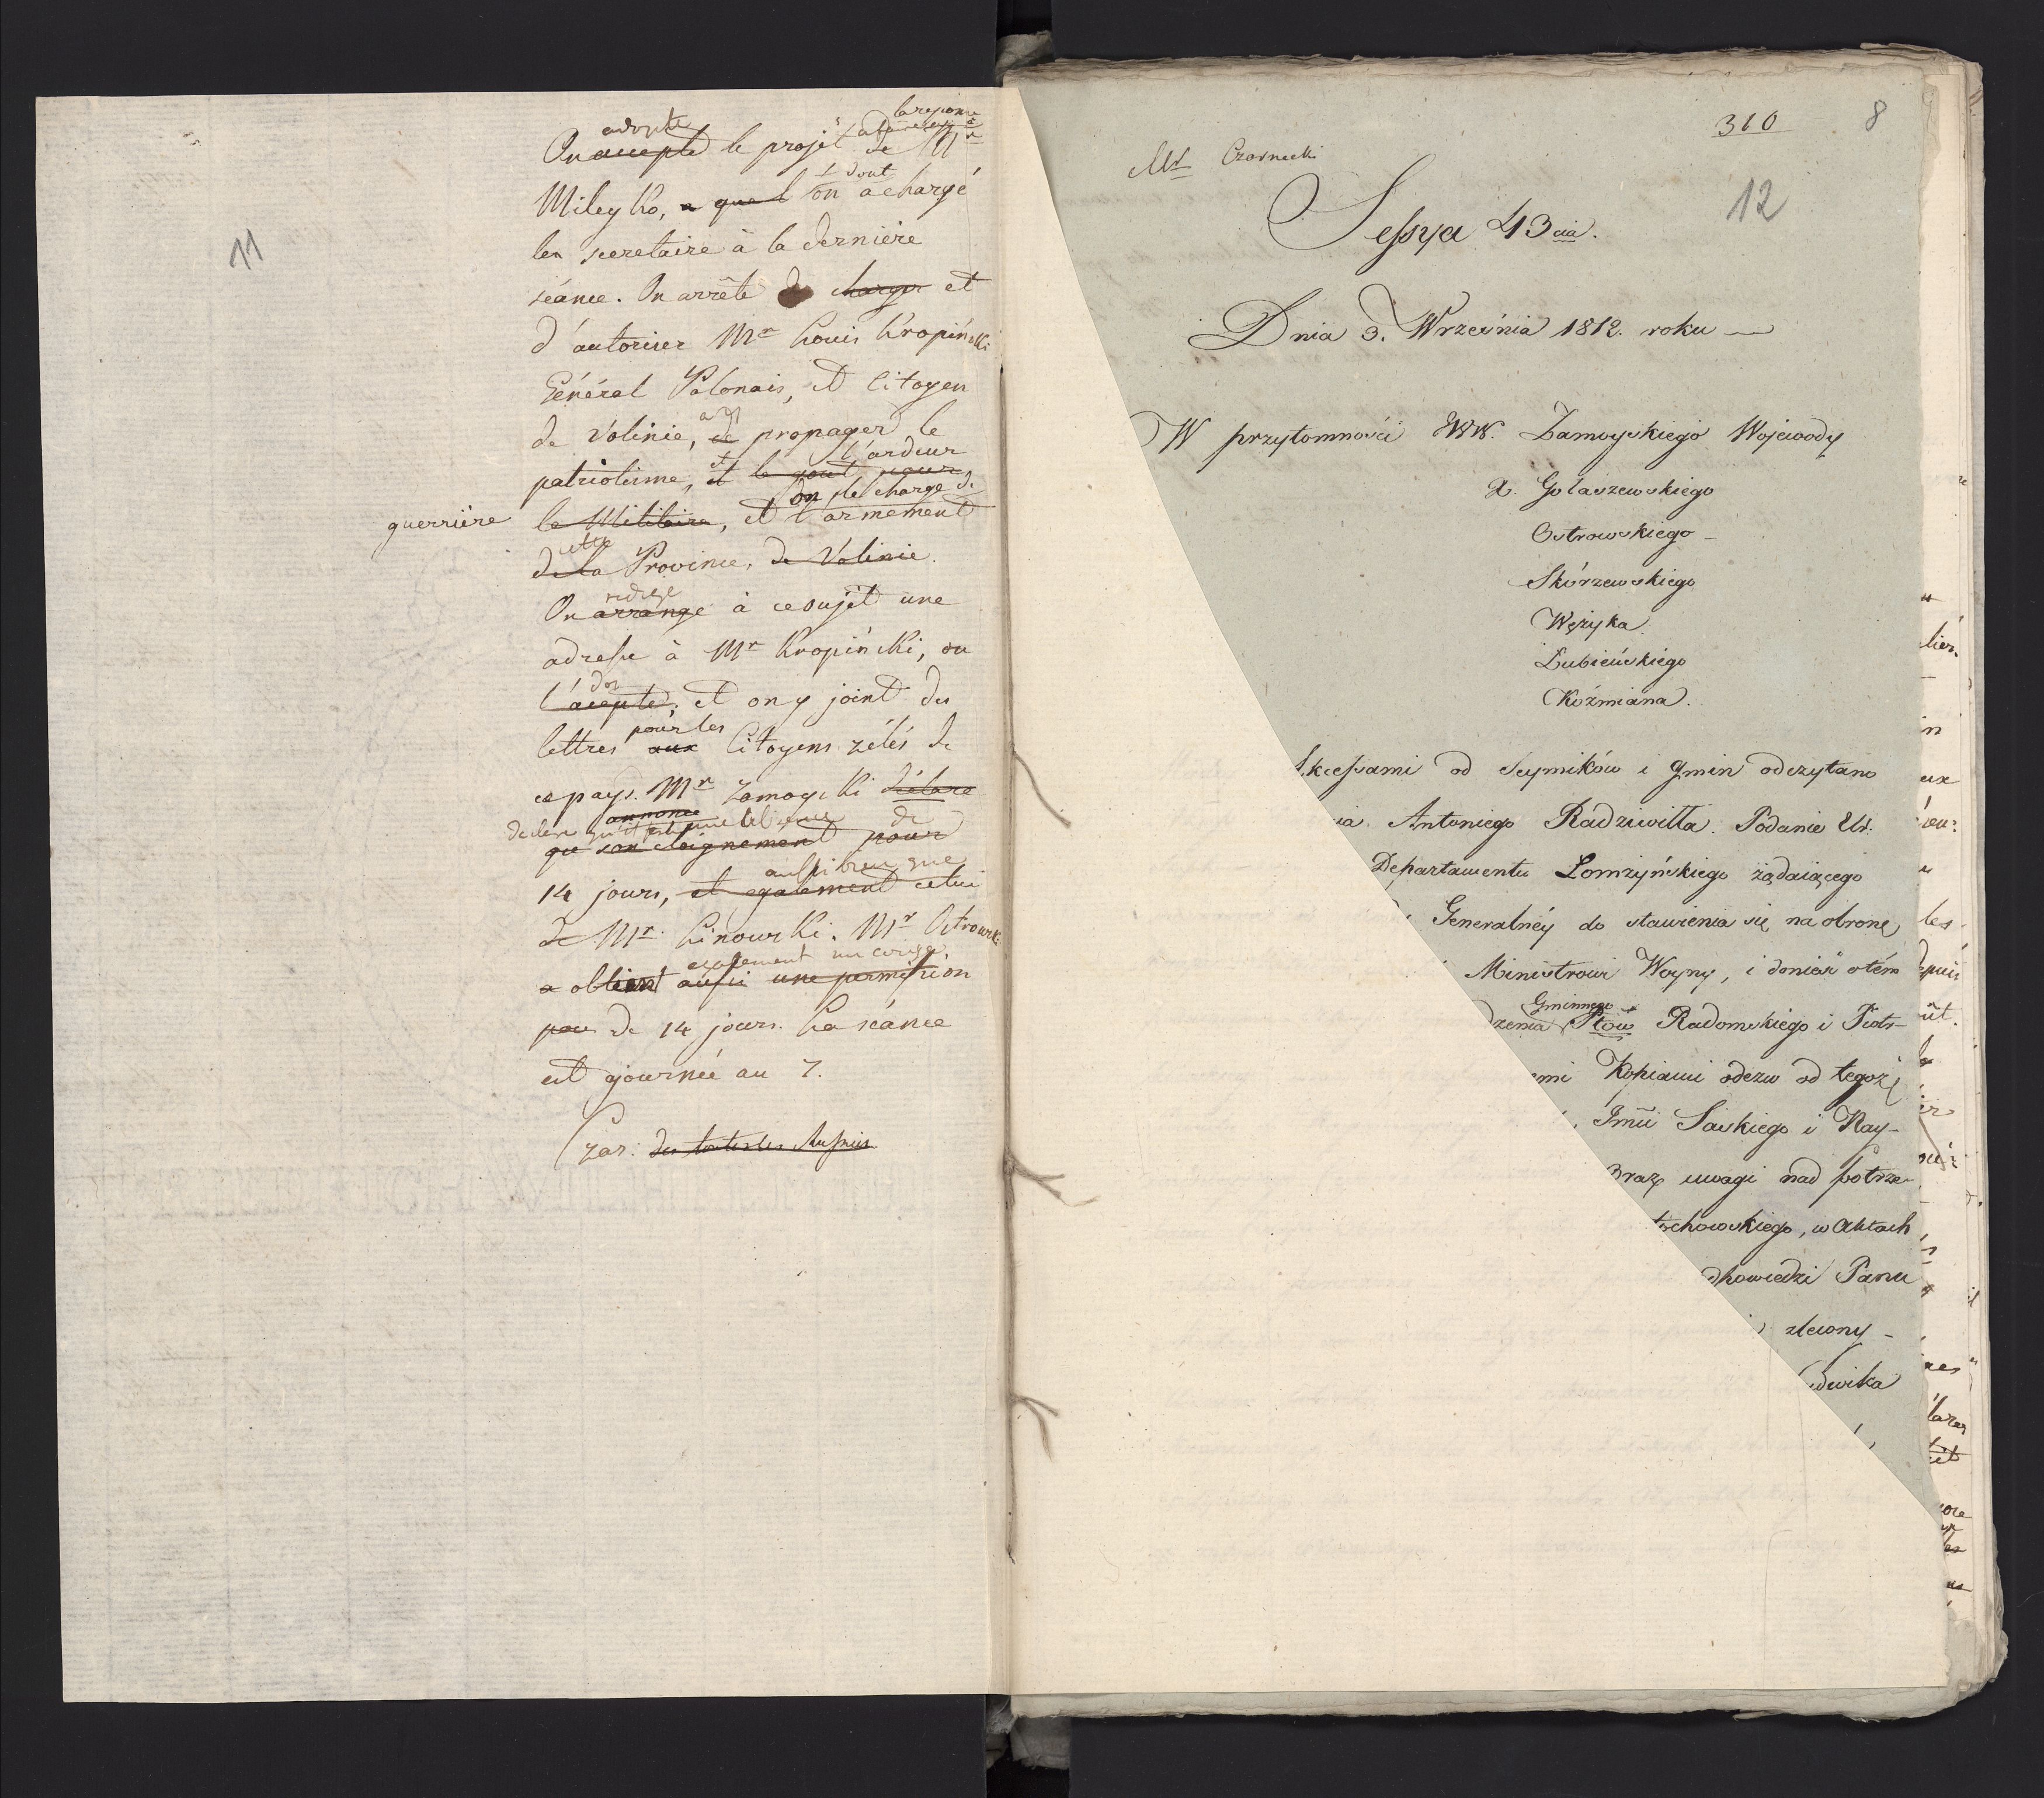 11
adopté la réponse
On accepte le projet de Mr
+ dont
Mileyko, a quel on a chargé
les secretaire à la dernière
séance. On arrête charger et
d'autoriser Mr Louis Kropiński
Général Polonais, et Citoyen
de Volinie, de propager le
l'ardeur
patriotisme, et le gout pour
on le charge de
guerrière le Militaire, et l'armement
cette
de la Province, de Volinie.
redige
On arrange à ce sujet une
adresse à Mr Kropiński, on
l'accepte; et on y joint des
pour les
lettres aux Citoyens zélés de
ce pays. Mr Zamoyski déclare
annonce
declare de
que son eloignement pour
aussi bien que
14 jours, et egalement celui
de Mr. Linowski. Mr Ostrowski
egalement un congé
a obtient aussi une permission
pour de 14 jours. La séance
est ajournée au 7.
Czar:
310 8
Mr Czarnecki
12
Sessya 43cia.
Dnia 3. Września 1812. roku
W przytomności WW. Zamoyskiego Wojewody
X. Gołaszewskiego
Ostrowskiego
Skórzewskiego
Wężyka
Łubieńskiego
Koźmiana.
Akcessami od Seymików i gmin odczytano
ia Antoniego Radziwiłła. Podanie Ur.
Departamentu Łomżyńskiego żądaiącego
Generalnéy do stawienia się na obronę
Ministrowi Woyny, i donieść o tém
Gminnego
dzenia Ptów Radomskiego i Piotr-
emi Kopiami odezw od tegoż
Imii Saskiego i Ray-
oraz uwagi nad potrze-
tochowskiego, w Aktach
dpowiedzi Panu
zlecony
dwika